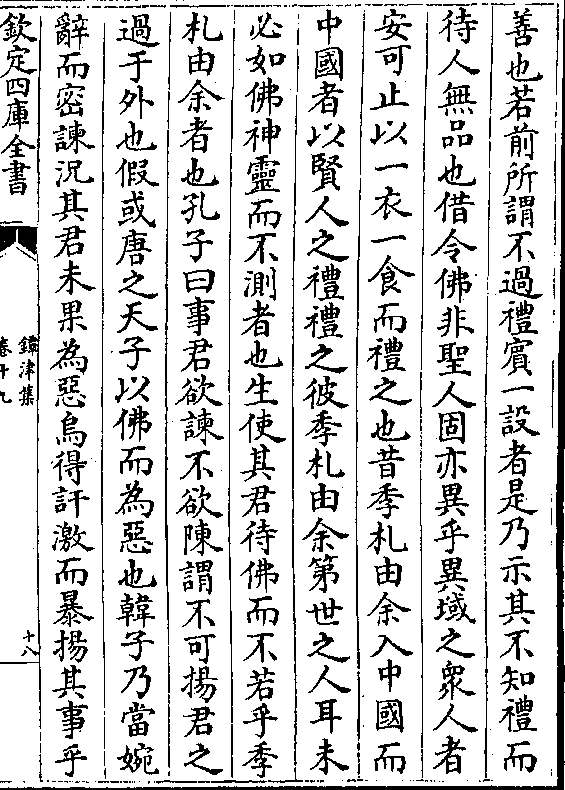 善也若前所謂不過禮賓一設者是乃示其不知禮而
待人無品也借令佛非聖人固亦異乎異域之衆人者
安可止以一衣一食而禮之也昔季札由余入中國而
中國者以賢人之禮禮之彼季札由余第世之人耳未
必如佛神靈而不測者也生使其君待佛而不若乎季
札由余者也孔子曰事君欲諫不欲陳謂不可揚君之
過于外也假或唐之天子以佛而為惡也韓子乃當婉
辭而密諫況其君未果為惡烏得訐激而暴揚其事乎
欽定四庫全書
鐔津集
卷十九
十八